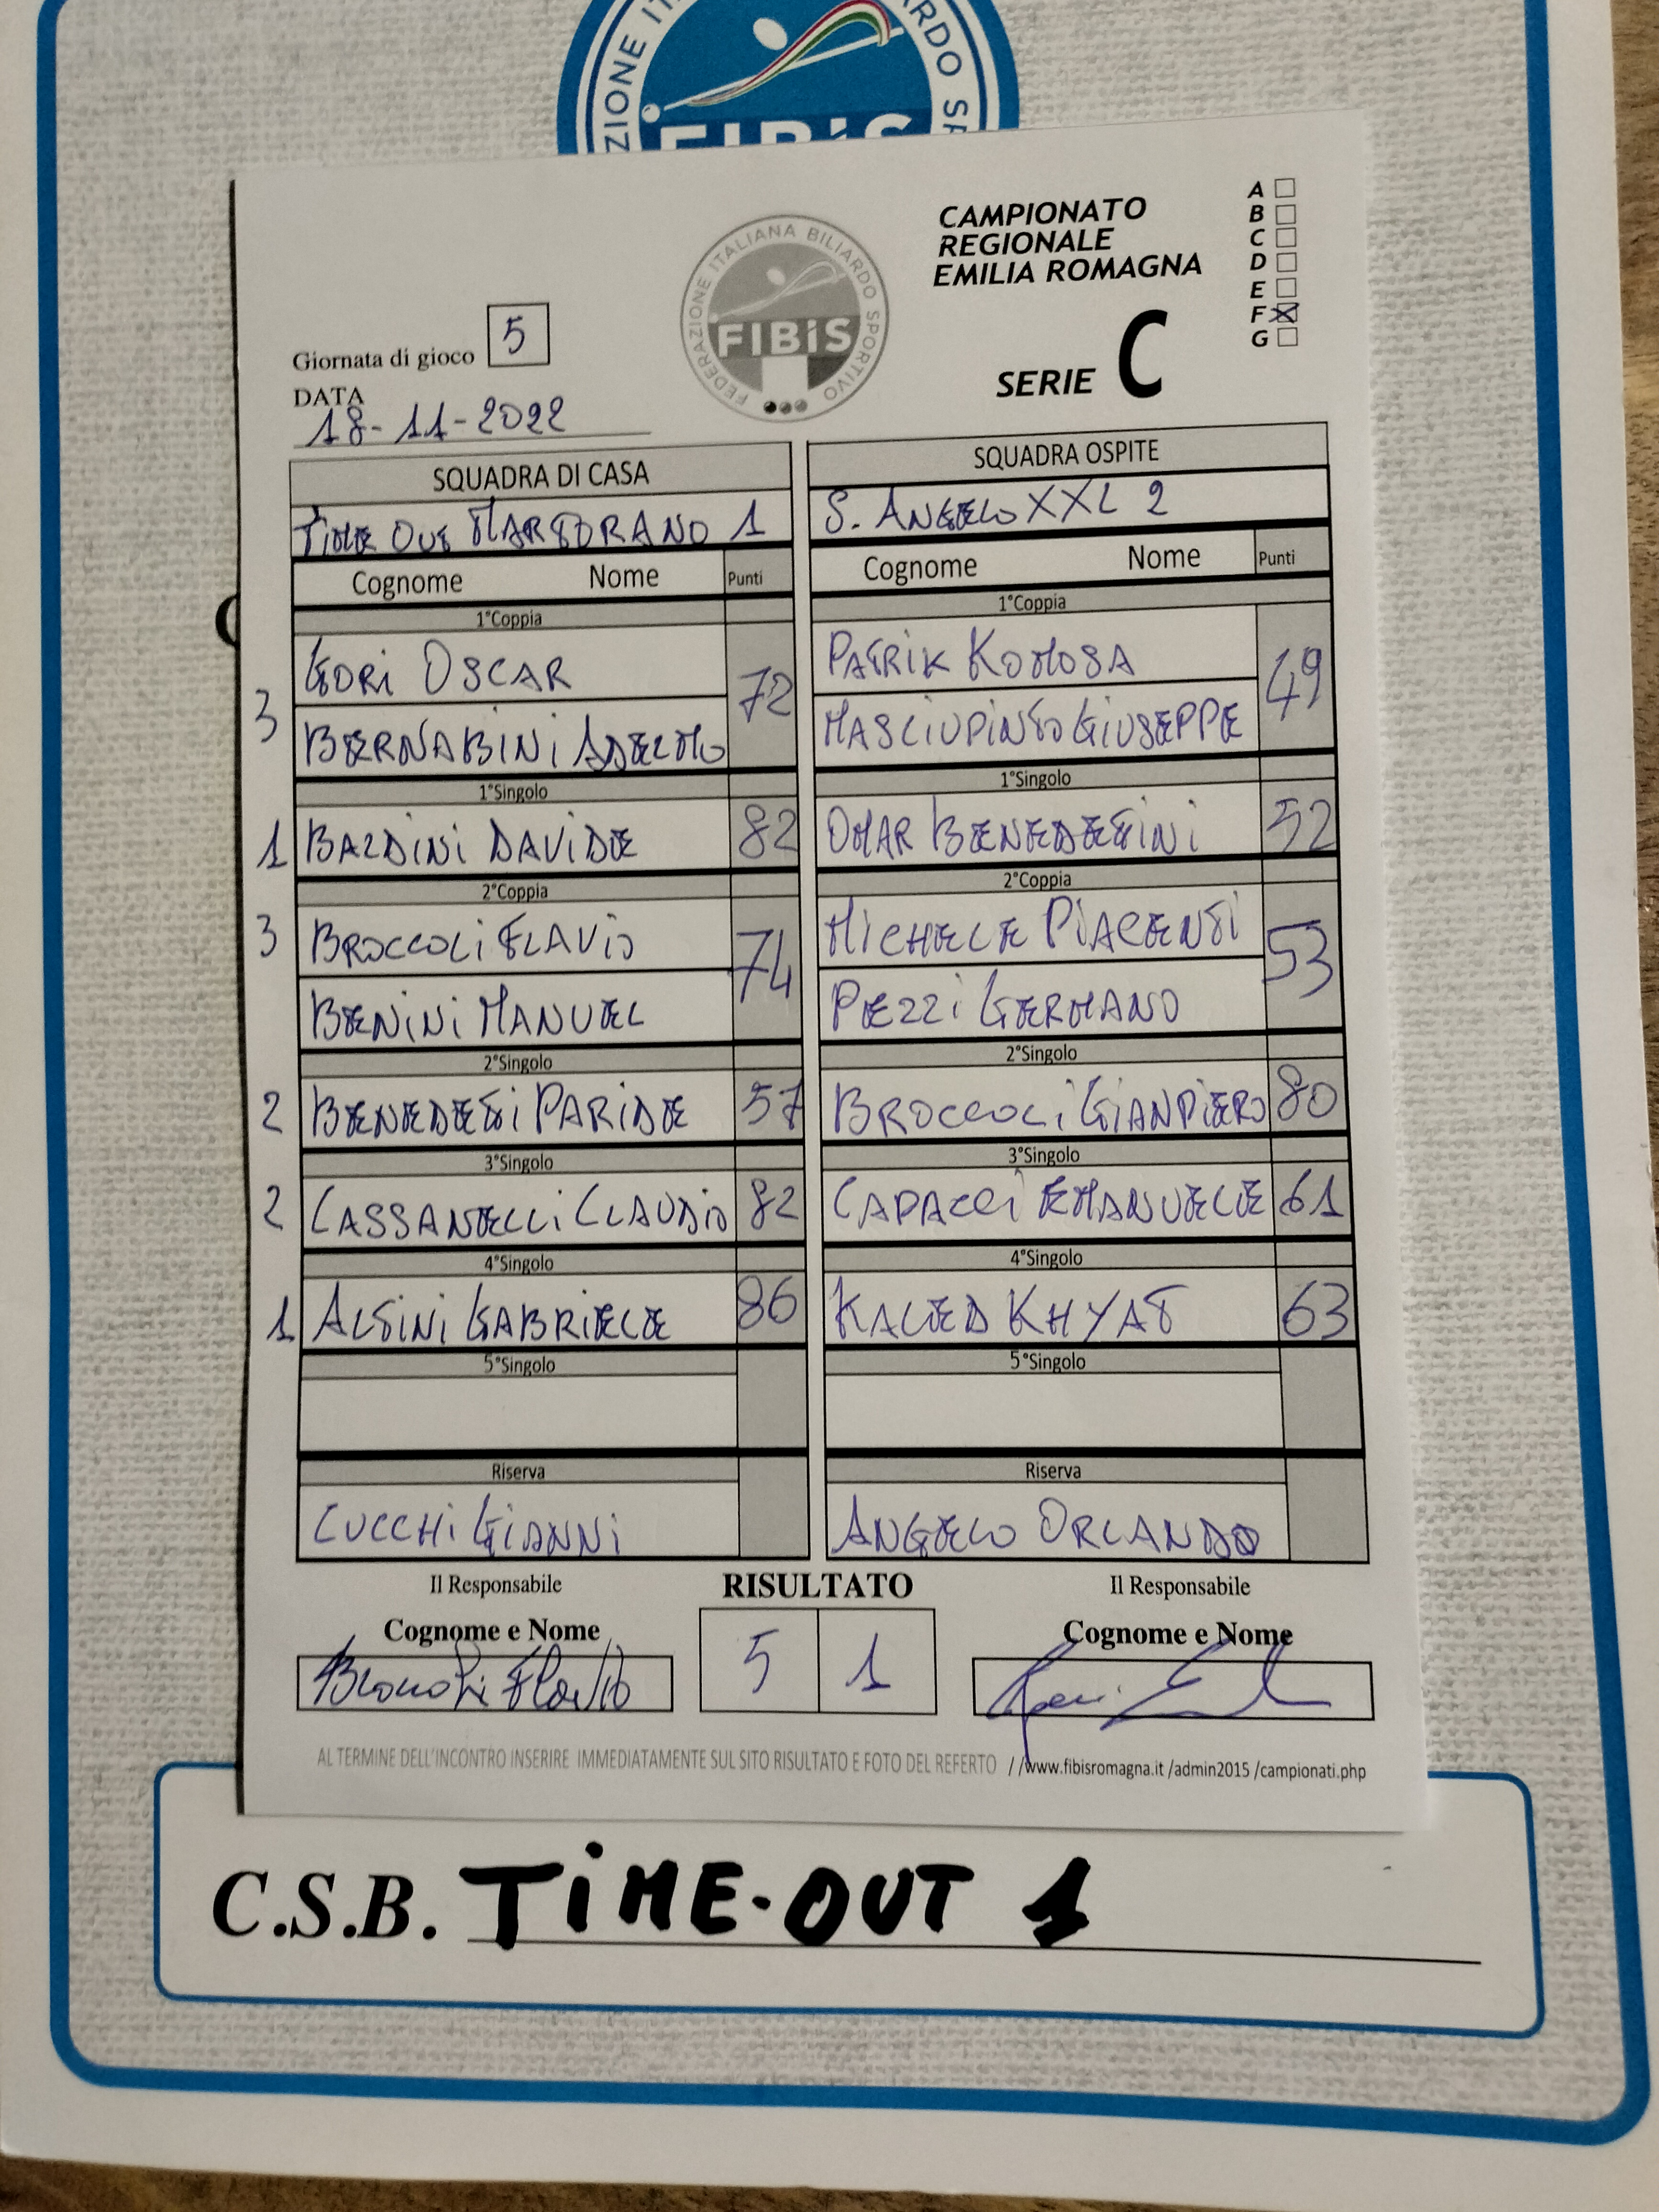 ZIONE IT
ARDO SP
FIBiS
CAMPIONATO
REGIONALE
EMILIA ROMAGNA
SERIE C
A
B
C
D
E
F X
G
FEDERAZIONE ITALIANA BILIARDO SPORTIVO
FIBiS
Giornata di gioco 5
DATA
18-11-2022
SQUADRA DI CASA
SQUADRA OSPITE
TiME OUT MARTORANO 1
S. ANGELO XXL 2
Cognome Nome Punti
Cognome Nome Punti
1°Coppia
1°Coppia
3
GORi OSCAR
72
BERNABINi ADELMO
PATRIK KOMOSA
49
MASCIUPINTO GiUSEPPE
1°Singolo
1°Singolo
1 BALDiNi DAViDE 82
OMAR BENEDETTINI 52
2°Coppia
2°Coppia
3 BROCCOLi FLAViO
74
BENiNi MANUEL
MiCHELE PIACENTi
53
PEZZi GERMANO
2°Singolo
2°Singolo
2 BENEDETTi PARiDE 57
BROCCOLi GIANPiERO 80
3°Singolo
3°Singolo
2 CASSANELLi CLAUDiO 82
CAPACCi EMANUELE 61
4°Singolo
4°Singolo
1 ALTiNi GABRiELE 86
KALED KHYAT 63
5°Singolo
5°Singolo
Riserva
Riserva
CUCCHi GiANNi
ANGELO ORLANDO
Il Responsabile
RISULTATO
Il Responsabile
Cognome e Nome
Cognome e Nome
Broccoli Flavio
5 1
AL TERMINE DELL'INCONTRO INSERIRE IMMEDIATAMENTE SUL SITO RISULTATO E FOTO DEL REFERTO //www.fibisromagna.it /admin2015 /campionati.php
C.S.B. TiME-OUT 1